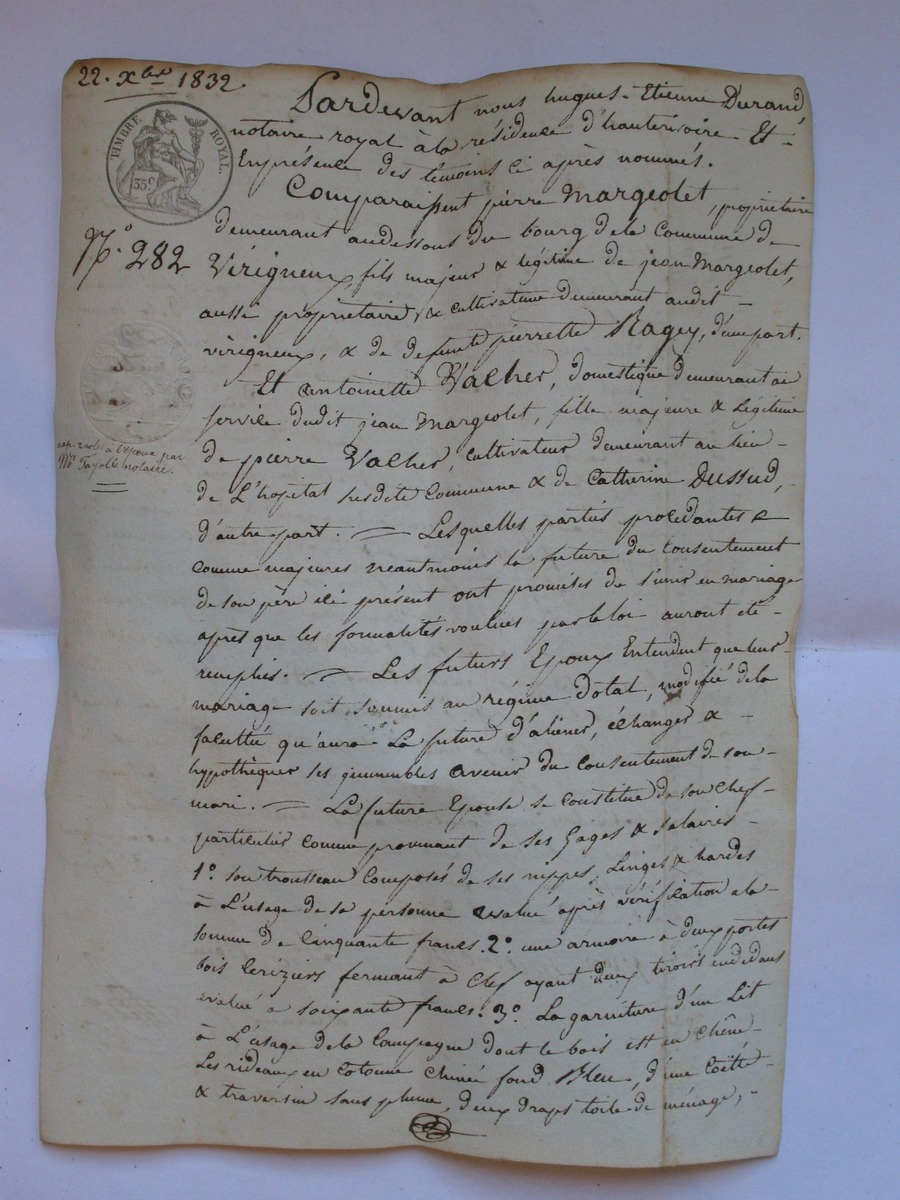 22. Xbre 1832
Pardevant nous hugues-Etienne Durand,
notaire royal à la résidence d'hauterivoire Et
En présence des témoins ci après nommés.
TIMBRE ROYAL.
35c
Comparaissent pierre Margeolet, propriétaire
N.º 282
demeurant audessous du bourg dela Commune de
Virigneux, fils majeur & légitime de jean Margeolet,
aussi propriétaire & cultivateur demeurant audit
virigneux, & de defunte pierrette Ragey, d'une part.
Et antoinette Vacher, domestique demeurant au
service dudit jean Margeolet, fille majeure & Légitime
de pierre Vacher, cultivateur demeurant au lieu
à l'Epoux par
Me Fayolle notaire.
de L'hopital susdite Commune & de Catherine Dussud,
d'autre part. — Lesquelles parties procédantes
comme majeures neantmoins la future du Consentement
de son père ici présent ont promises de s'unir en mariage
après que les formalités voulues par la loi auront été
remplies. — Les futurs Epoux Entendent que leur
mariage soit soumis au régime Dotal, modifié dela
faculté qu'aura La future d'aliéner, échanger &
hypothéquer ses immeubles avenir du consentement de son
mari. — La future Epouse se Constitue de son chef
particulier comme provenant de ses Gages & salaires
1º. son trousseau Composés de ses nippes, Linges & hardes
à L'usage de sa personne évalué après vérification ala
somme de Cinquante francs. 2º. une armoire à deux portes
bois Cerizier fermant à Clef ayant deux tiroirs endedans
évalué a soixante francs. 3º. La garniture d'un Lit
à L'usage dela Campagne dont le bois est en Chêne
Les rideaux en Cotonne Chinée fond Bleu, d'une Coëtte
& traversin sans plume, deux draps toile de ménage,